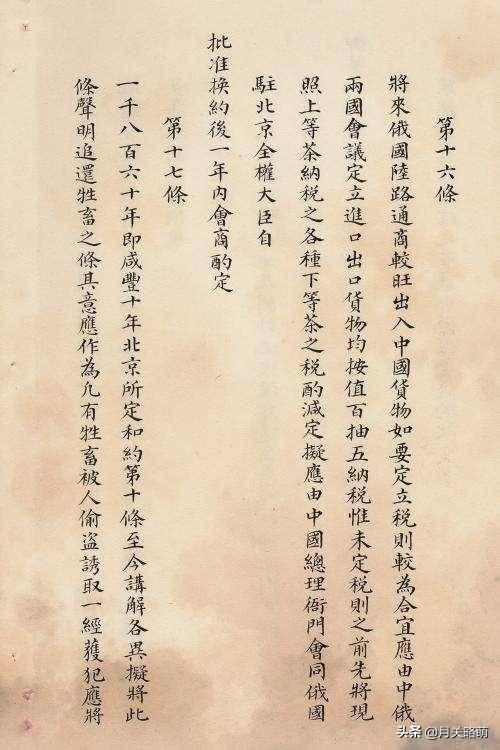 第十六條
將來俄國陸路通商較旺出入中國貨物如要定立税則較為合宜應由中俄
兩國會議定立進口出口貨物均按值百抽五納税惟未定税則之前先將現
照上等茶納税之各種下等茶之税酌減定擬應由中國總理衙門會同俄國
駐北京全權大臣自
批准換約後一年内會商酌定
第十七條
一千八百六十年即咸豐十年北京所定和約第十條至今講解各異擬將此
條聲明追還牲畜之條其意應作為凡有牲畜被人偷盜誘取一經獲犯應將
头条 @月关路萌